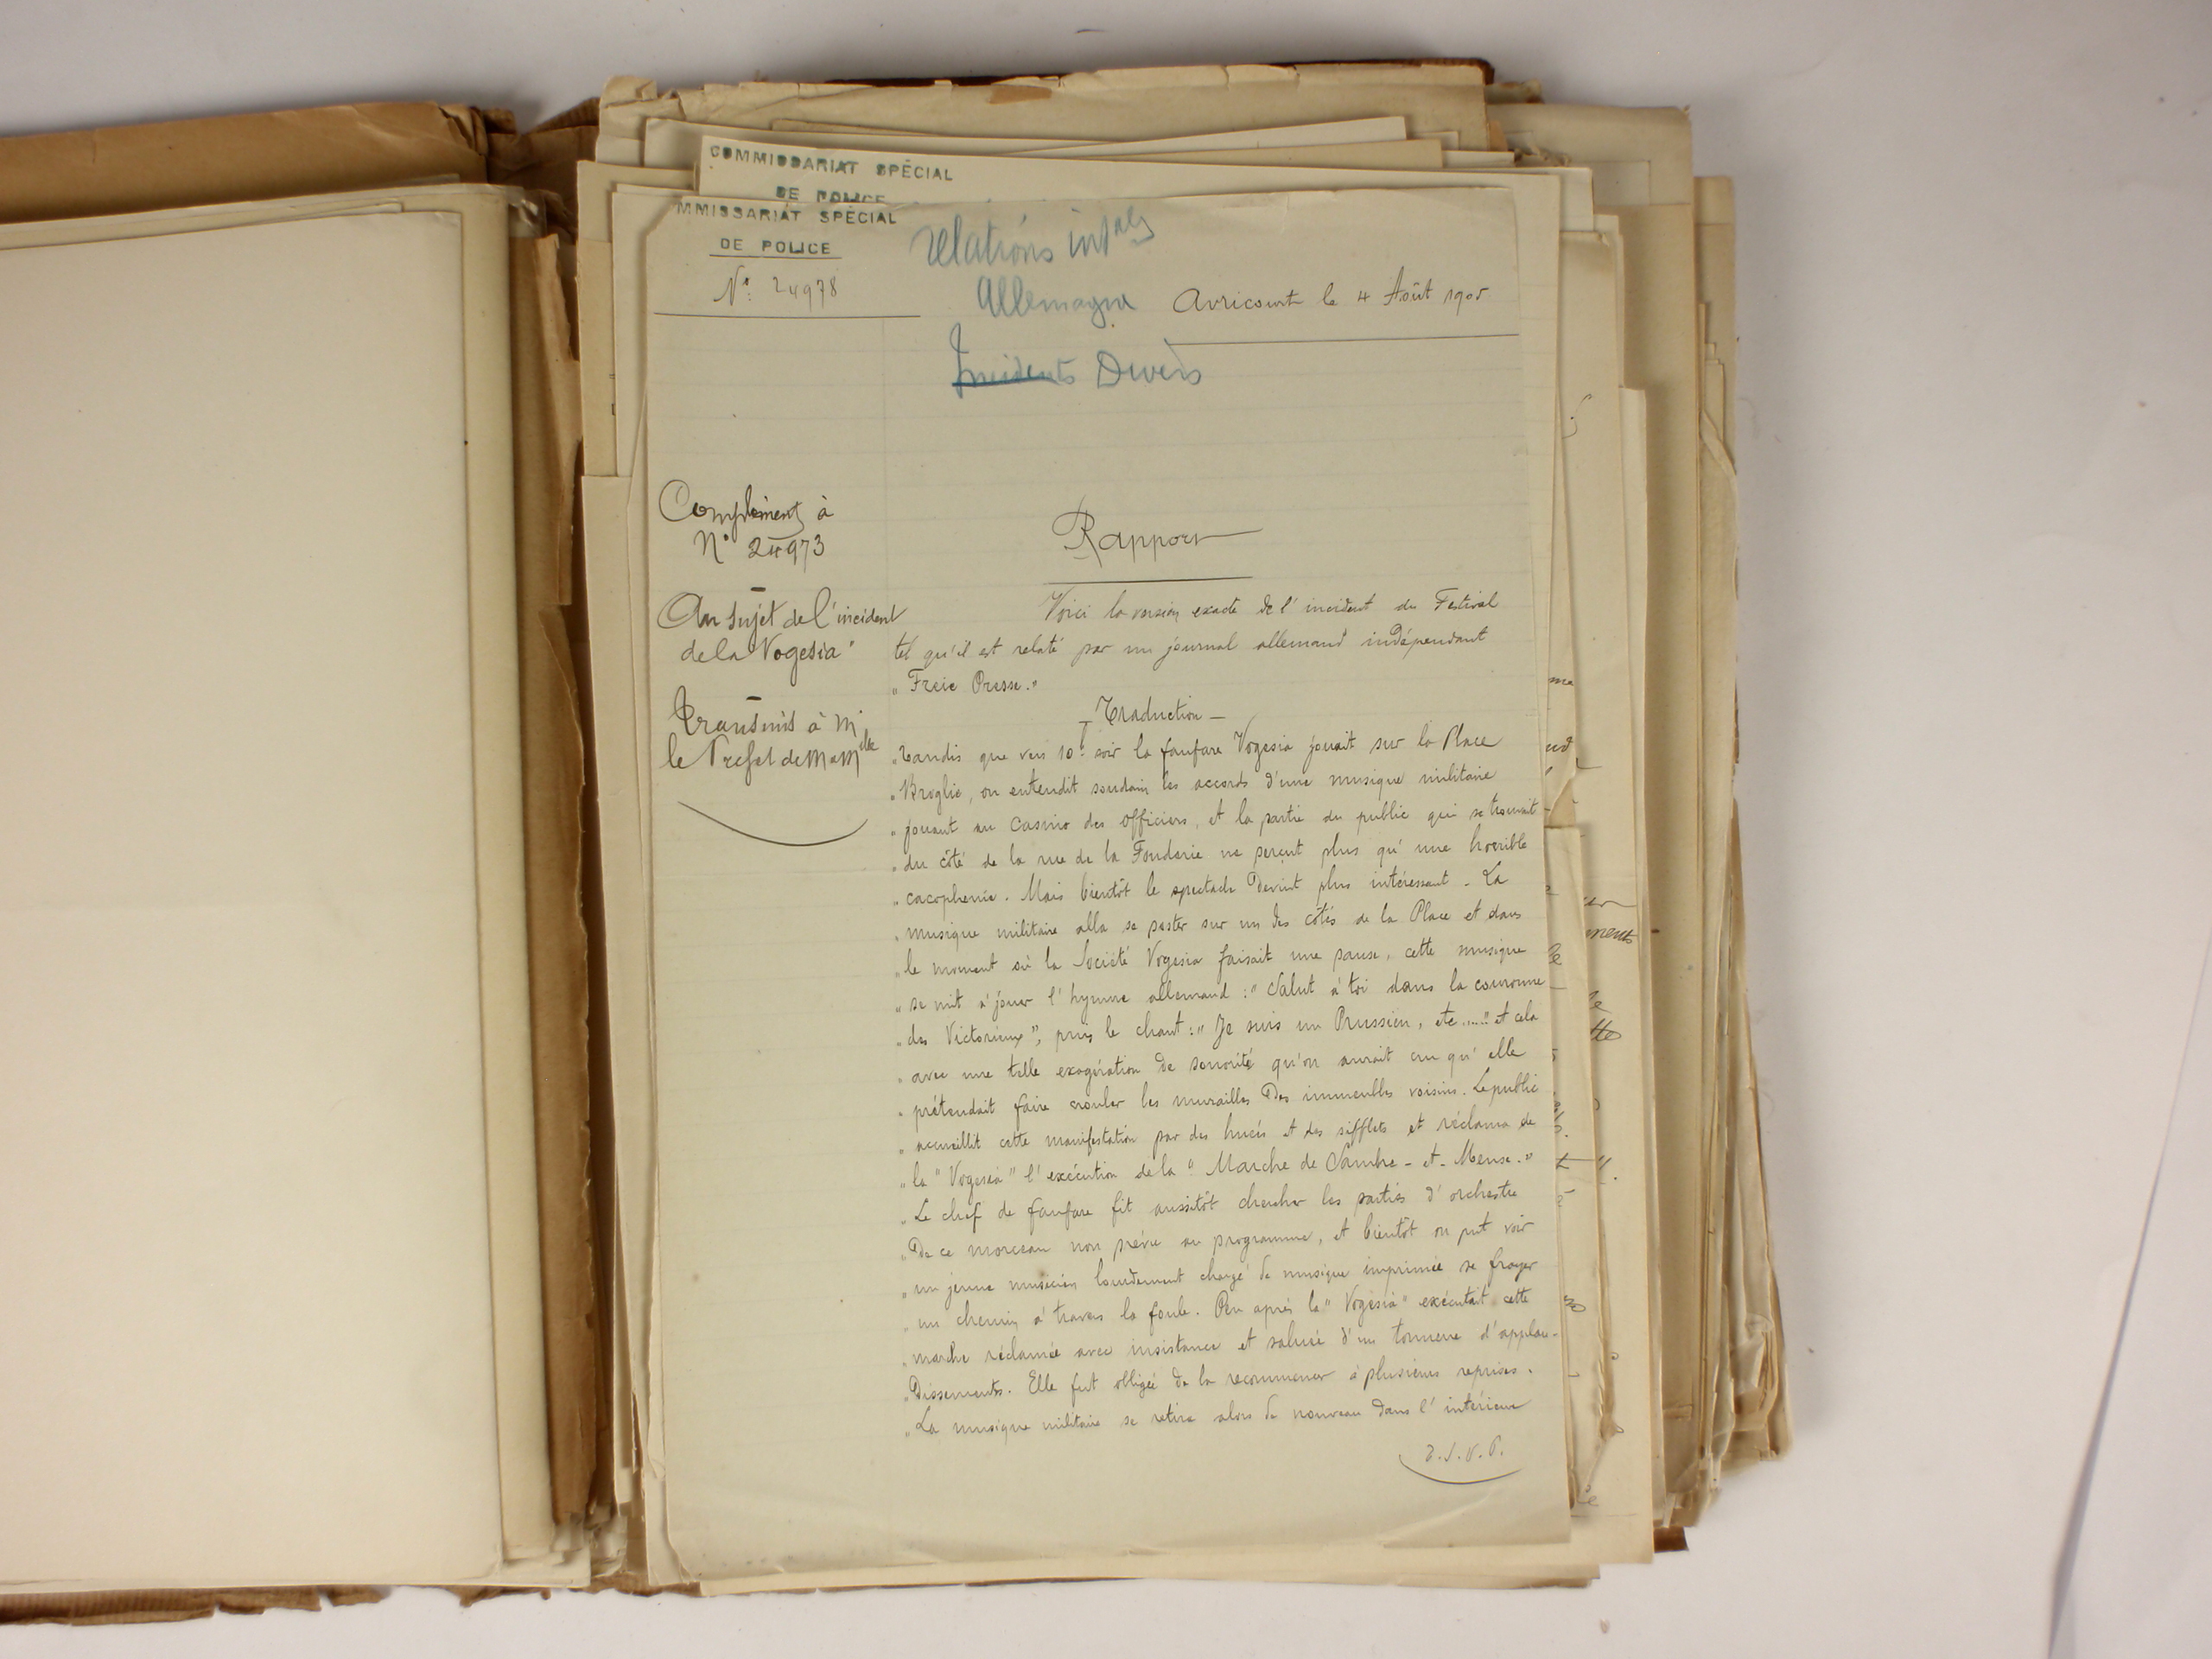 COMMISSARIAT SPÉCIAL
DE POLICE
MMISSARIAT SPÉCIAL
DE POLICE
N°: 24978
relations intales
Allemagne
Avricourt le 4 Août 1905
Incidents Divers
Complément à
N° 24973
Au sujet de l'incident
de la "Vogesia"
Transmis à M.
le Préfet de M et Mlle
Rapport
Voici la version exacte de l'incident du Festival
tel qu'il est relaté par un journal allemand indépendant
"Freie Presse."
Traduction —
"Tandis que vers 10h soir la fanfare Vogesia jouait sur la Place
"Broglie, on entendit soudain les accords d'une musique militaire
"jouant au Casino des Officiers, et la partie du public qui se trouvait
"du côté de la rue de la Fonderie ne perçut plus qu'une horrible
"cacophonie. Mais bientôt le spectacle devint plus intéressant. La
"musique militaire alla se poster sur un des côtés de la Place et dans
"le moment où la Société Vogesia faisait une pause, cette musique
"se mit à jouer l'hymne allemand : "Salut à toi dans la couronne
"des Victorieux", puis le chant : "Je suis un Prussien, etc....." et cela
"avec une telle exagération de sonorité qu'on aurait cru qu'elle
"prétendait faire crouler les murailles des immeubles voisins. Le public
"accueillit cette manifestation par des huées et des sifflets et réclama de
"la "Vogesia" l'exécution de la "Marche de Sambre-et-Meuse."
"Le chef de fanfare fit aussitôt chercher les parties d'orchestre
"de ce morceau non prévu au programme, et bientôt on put voir
"un jeune musicien lourdement chargé de musique imprimée se frayer
"un chemin à travers la foule. Peu après la "Vogesia" exécutait cette
"marche réclamée avec insistance et saluée d'un tonnerre d'applau-
"dissements. Elle fut obligée de la recommencer à plusieurs reprises.
"La musique militaire se retira alors de nouveau dans l'intérieur
T.S.V.P.